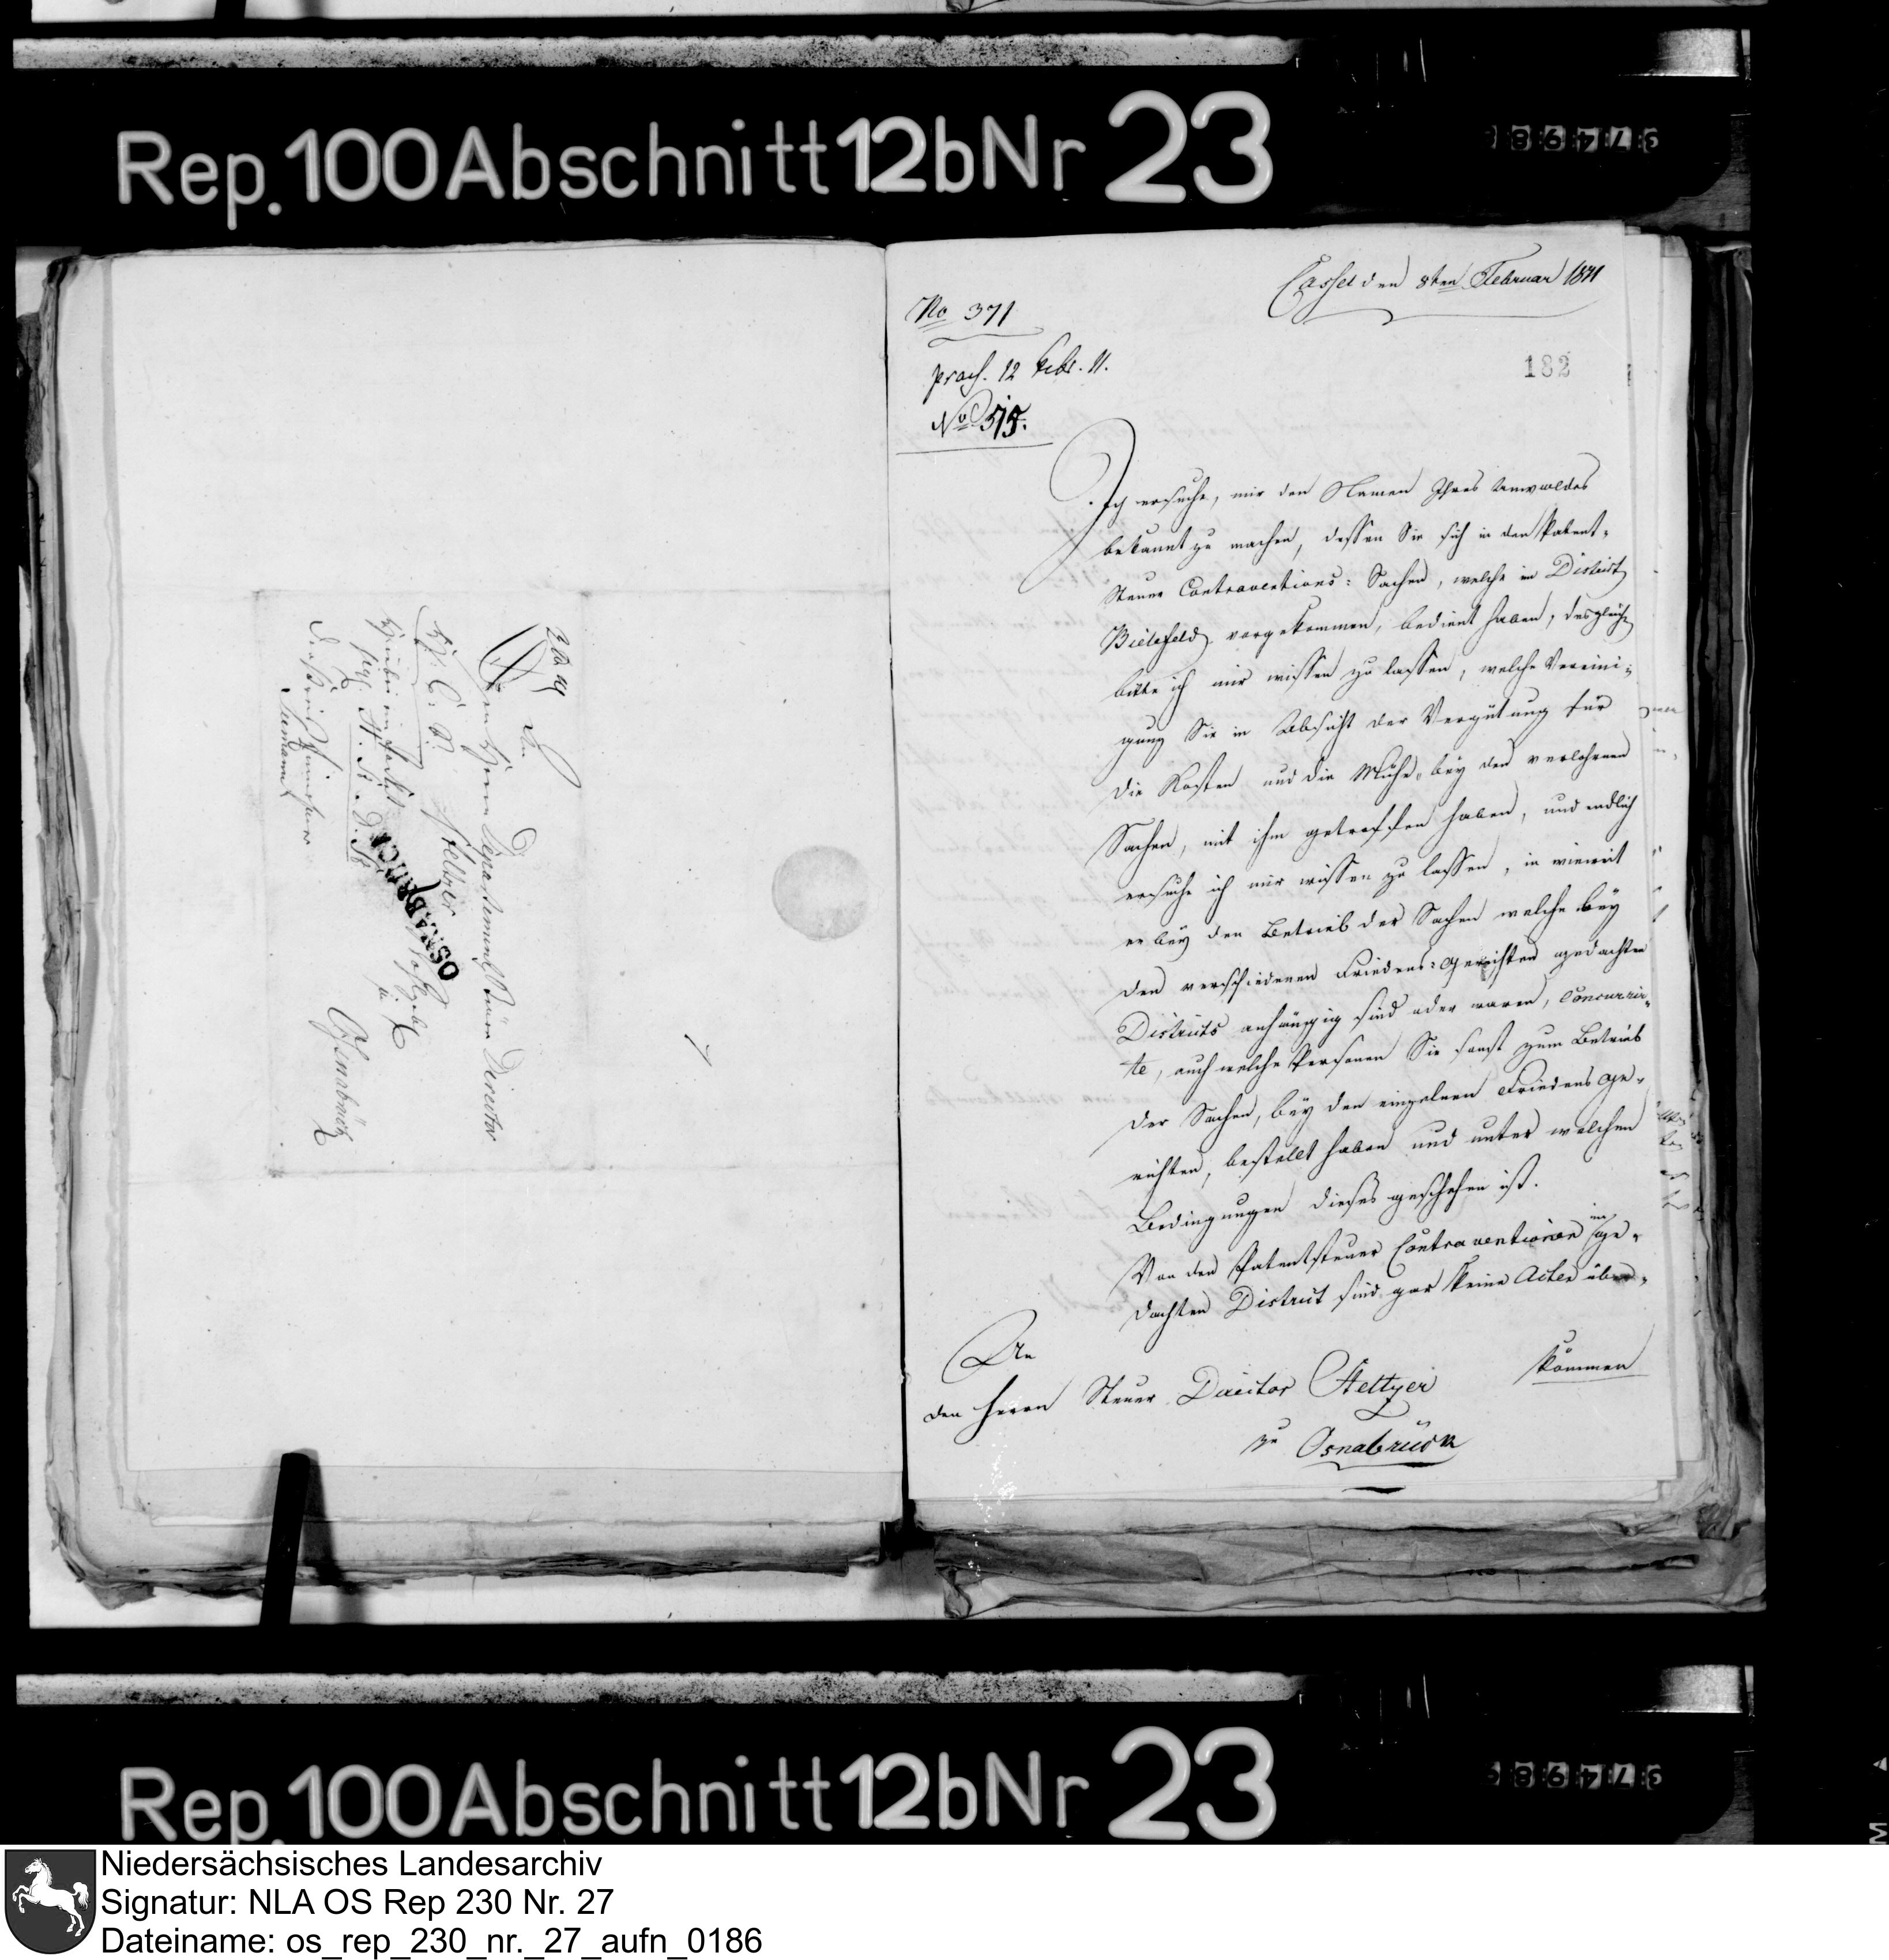 Rep. 100 Abschnitt 12b Nr 23
An
den Herrn Departements Steuer Director
Steltzer
Wohlgeb.
zu
Osnabrück
OSNABRÜCK
Cassel den 8ten Februar 1811
No 371
praes. 12 Febr. 11.
No 515.
182
Ich ersuche, mir den Namen Ihres Anwaldes
bekannt zu machen, dessen Sie sich in den Patent-
Steuer Contraventions: Sachen, welche im District
Bielefeld vorgekommen, bedient haben, desgleichen
bitte ich mir wissen zu lassen, welche Vereini-
gung Sie in Absicht der Vergütung für
die Kosten und die Mühe, bey den verlohrnen
Sachen, mit ihm getroffen haben, und endlich
ersuche ich mir wissen zu lassen, in wieweit
er bey den Betrieb der Sachen welche bey
den verschiedenen Friedens: Gerichten gedachten
Districts anhängig sind oder waren, concurrir-
te, auch welche Personen Sie sonst zum Betrieb
der Sachen, bey den einzelnen Friedens Ge-
richten, bestellt haben und unter welchen
Bedingungen dieses geschehen ist.
Von den Patentsteuer Contraventionen im ge-
dachten District sind gar keine Acten über-
kommen
An
den Herrn Steuer Director Steltzer
zu Osnabrück
Rep. 100 Abschnitt 12b Nr 23
Niedersächsisches Landesarchiv
Signatur: NLA OS Rep 230 Nr. 27
Dateiname: os_rep_230_nr._27_aufn_0186